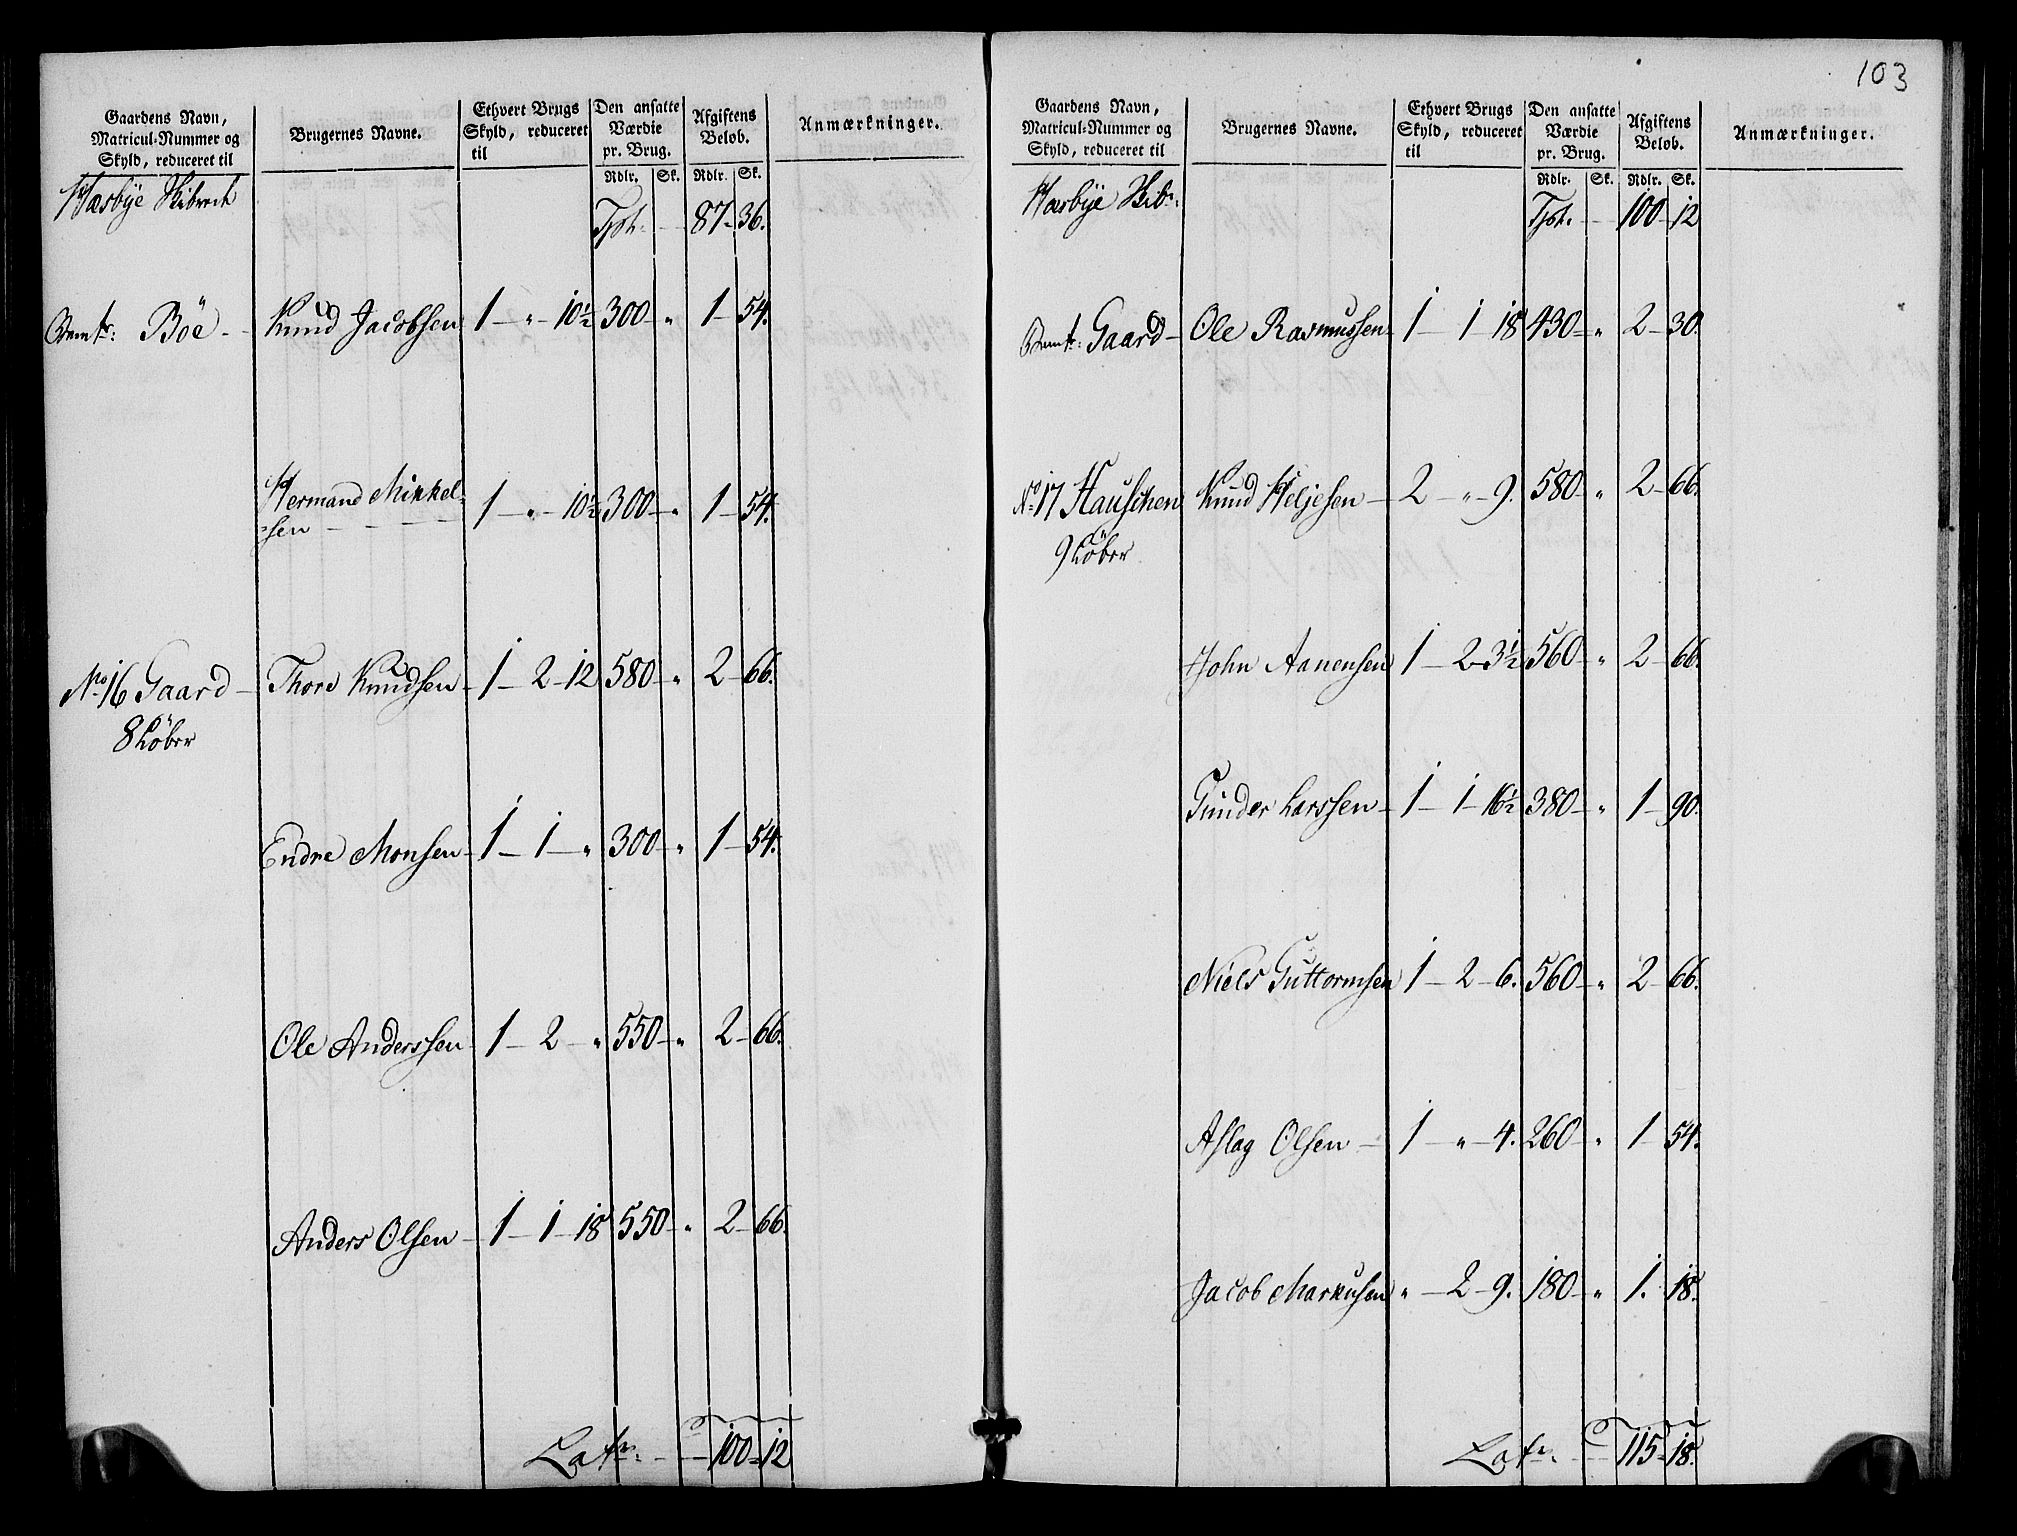 103
Gaardens Navn, Matricul-Nummer og Skyld, reduceret til | Brugernes Navne. | Ethvert Brugs Skyld, reduceret til | Den ansatte Værdie pr. Brug. Rdlr. Sk. | Afgiftens Beløb. Rdlr. Sk. | Anmærkninger.
Hæsbye Skibrede
Tpt. 87 36.
Remtr: Böe Knud Jacobsen 1 " 10½ 300 " 1 54.
Hermand Mikkel-
sen 1 " 10½ 300 " 1 54.
No 16 Gaard Thore Knudsen 1 2 12 580 " 2 66.
8 Løber
Endre Monsen 1 1 " 300 " 1 54.
Ole Anderssen 1 2 " 550 " 2 66.
Anders Olsen 1 1 18 550 " 2 66.
Latr: 100 12
Gaardens Navn, Matricul-Nummer og Skyld, reduceret til | Brugernes Navne. | Ethvert Brugs Skyld, reduceret til | Den ansatte Værdie pr. Brug. Rdlr. Sk. | Afgiftens Beløb. Rdlr. Sk. | Anmærkninger.
Hæsbye Skib:
Tpt. 100 12
Remtr: Gaard Ole Rasmussen 1 1 18 430 " 2 30.
No 17 Hauschen Knud Heljesen 2 " 9. 580 " 2 66.
9 Løber
John Aanensen 1 2 3½ 560 " 2 66.
Gunder Larssen 1 1 16½ 380 " 1 90.
Niels Guttormsen 1 2 6. 560 " 2 66.
Aslag Olsen 1 " 4. 260 " 1 54.
Jacob Markusen " 2 9. 180 " 1. 18.
Latr: 115 18.